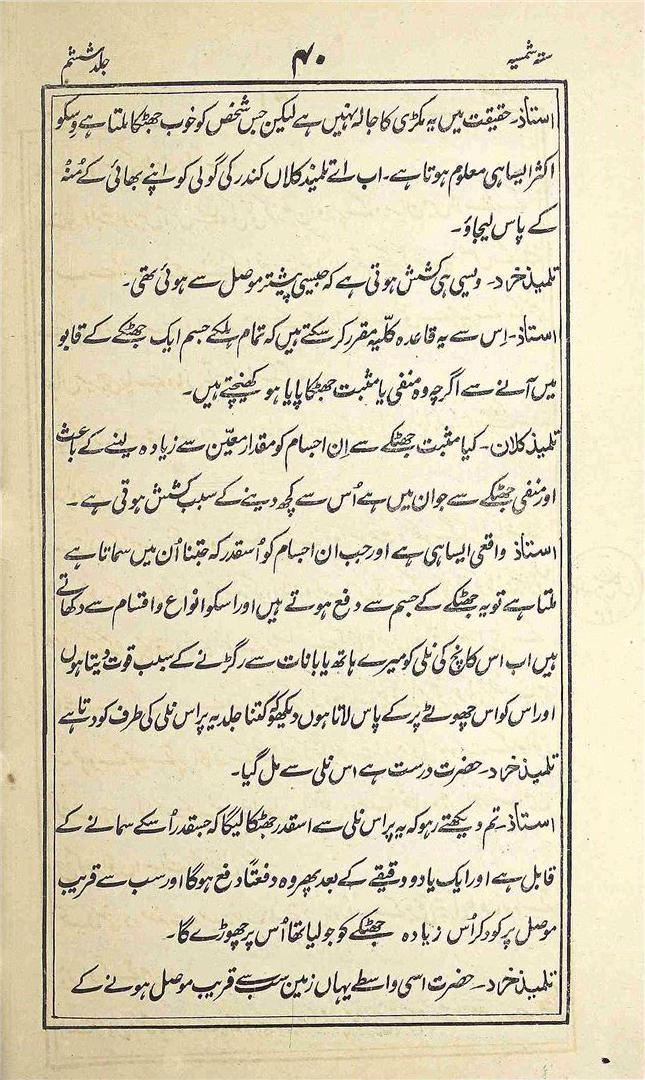 ستہ شمسیہ ۴۰ جلد ششم
استاذ۔ حقیقت میں یہ مکڑی کا جالہ نہیں ہے لیکن جس شخص کو خوب جھٹکا ملتا ہے وسکو
اکثر ایسا ہی معلوم ہوتا ہے۔ اب اے تلمیذ کلاں کندر کی گولی کو اپنے بھائی کے مُنہ
کے پاس لیجاؤ۔
تلمیذ خرد۔ ویسی ہی کشش ہوتی ہے کہ جیسی پیشتر موصل سے ہوئی تھی۔
استاذ۔ اِس سے یہ قاعدہ کلّیہ مقرر کر سکتے ہیں کہ تمام ہلکے جسم ایک جھٹکے کے قابو
میں آنے سے اگرچہ وہ منفی یا مثبت جھٹکا پایا ہو کھینچتے ہیں۔
تلمیذ کلان۔ کیا مثبت جھٹکے سے اِن اجسام کو مقدار معیّن سے زیادہ لینے کے باعث
اور منفی جھٹکے سے جو ان میں ہے اُس سے کچھ دینے کے سبب کشش ہوتی ہے۔
استاذ واقعی ایسا ہی ہے اور جب ان اجسام کو اُسقدر کہ جتنا اُن میں سماتا ہے
ملتا ہے تو یہ جھٹکے کے جسم سے دفع ہوتے ہیں اور اسکو انواع و اقسام سے دکھاتے
ہیں اب اس کانچ کی نلی کو میرے ہاتھ یا بانات سے رگڑنے کے سبب قوت دیتا ہوں
اور اس کو اس چھوٹے پر کے پاس لاتا ہوں دیکھو کہ کتنا جلد یہ پر اس نلی کی طرف کودتا ہے
تلمیذ خرد۔ حضرت درست ہے اس نلی سے مل گیا۔
استاذ۔ تم دیکھتے رہو کہ یہ پر اس نلی سے اسقدر جھٹکا لیگا کہ جسقدر اُسکے سمانے کے
قابل ہے اور ایک یا دو دقیقے کے بعد پھر وہ دفعتاً دفع ہوگا اور سب سے قریب
موصل پر کود کر اُس زیادہ جھٹکے کو جو لیا تھا اُس پر چھوڑے گا۔
تلمیذ خرد۔ حضرت اسی واسطے یہاں زمین سب سے قریب موصل ہونے کے